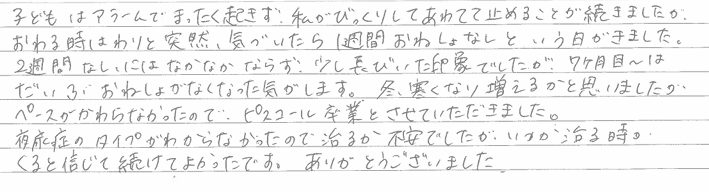 子どもはアラームでまったく起きず、私がびっくりしてあわてて止めることが続きましたが、
おわる時はわりと突然、気づいたら1週間おねしょなしという日がきました。
2週間なしにはなかなかならず、少し長びいた印象でしたが、7ヶ月目～は
だいぶおねしょがなくなった気がします。冬、寒くなり増えるかと思いましたが
ペースがかわらなかったので、ピスコール卒業とさせていただきました。
夜尿症のタイプがわからなかったので治るか不安でしたが、いつか治る時が
くると信じて続けてよかったです。ありがとうございました